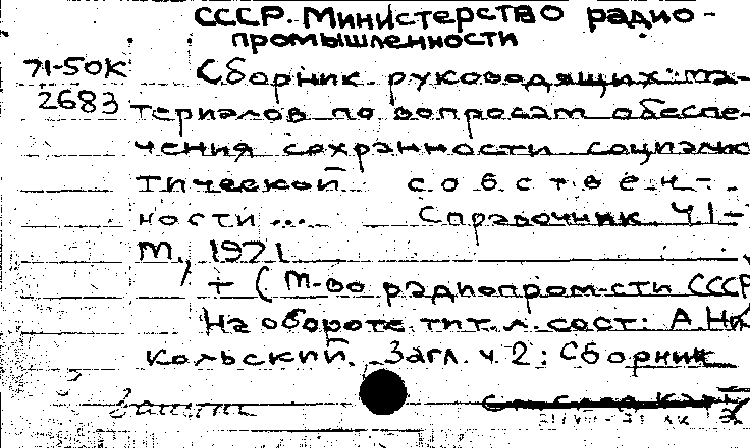 СССР. Министерство радио-
промышленности
71-50К
2683
Сборник руководящих ма-
териалов по вопросам обеспе-
чения сохранности социалис
тической собствен-
ности... Справочник Ч1-
М., 1971
+ (М-во радиопром-сти СССР
На обороте тит. л. сост: А. Ни
кольский. Загл. ч. 2: Сборник